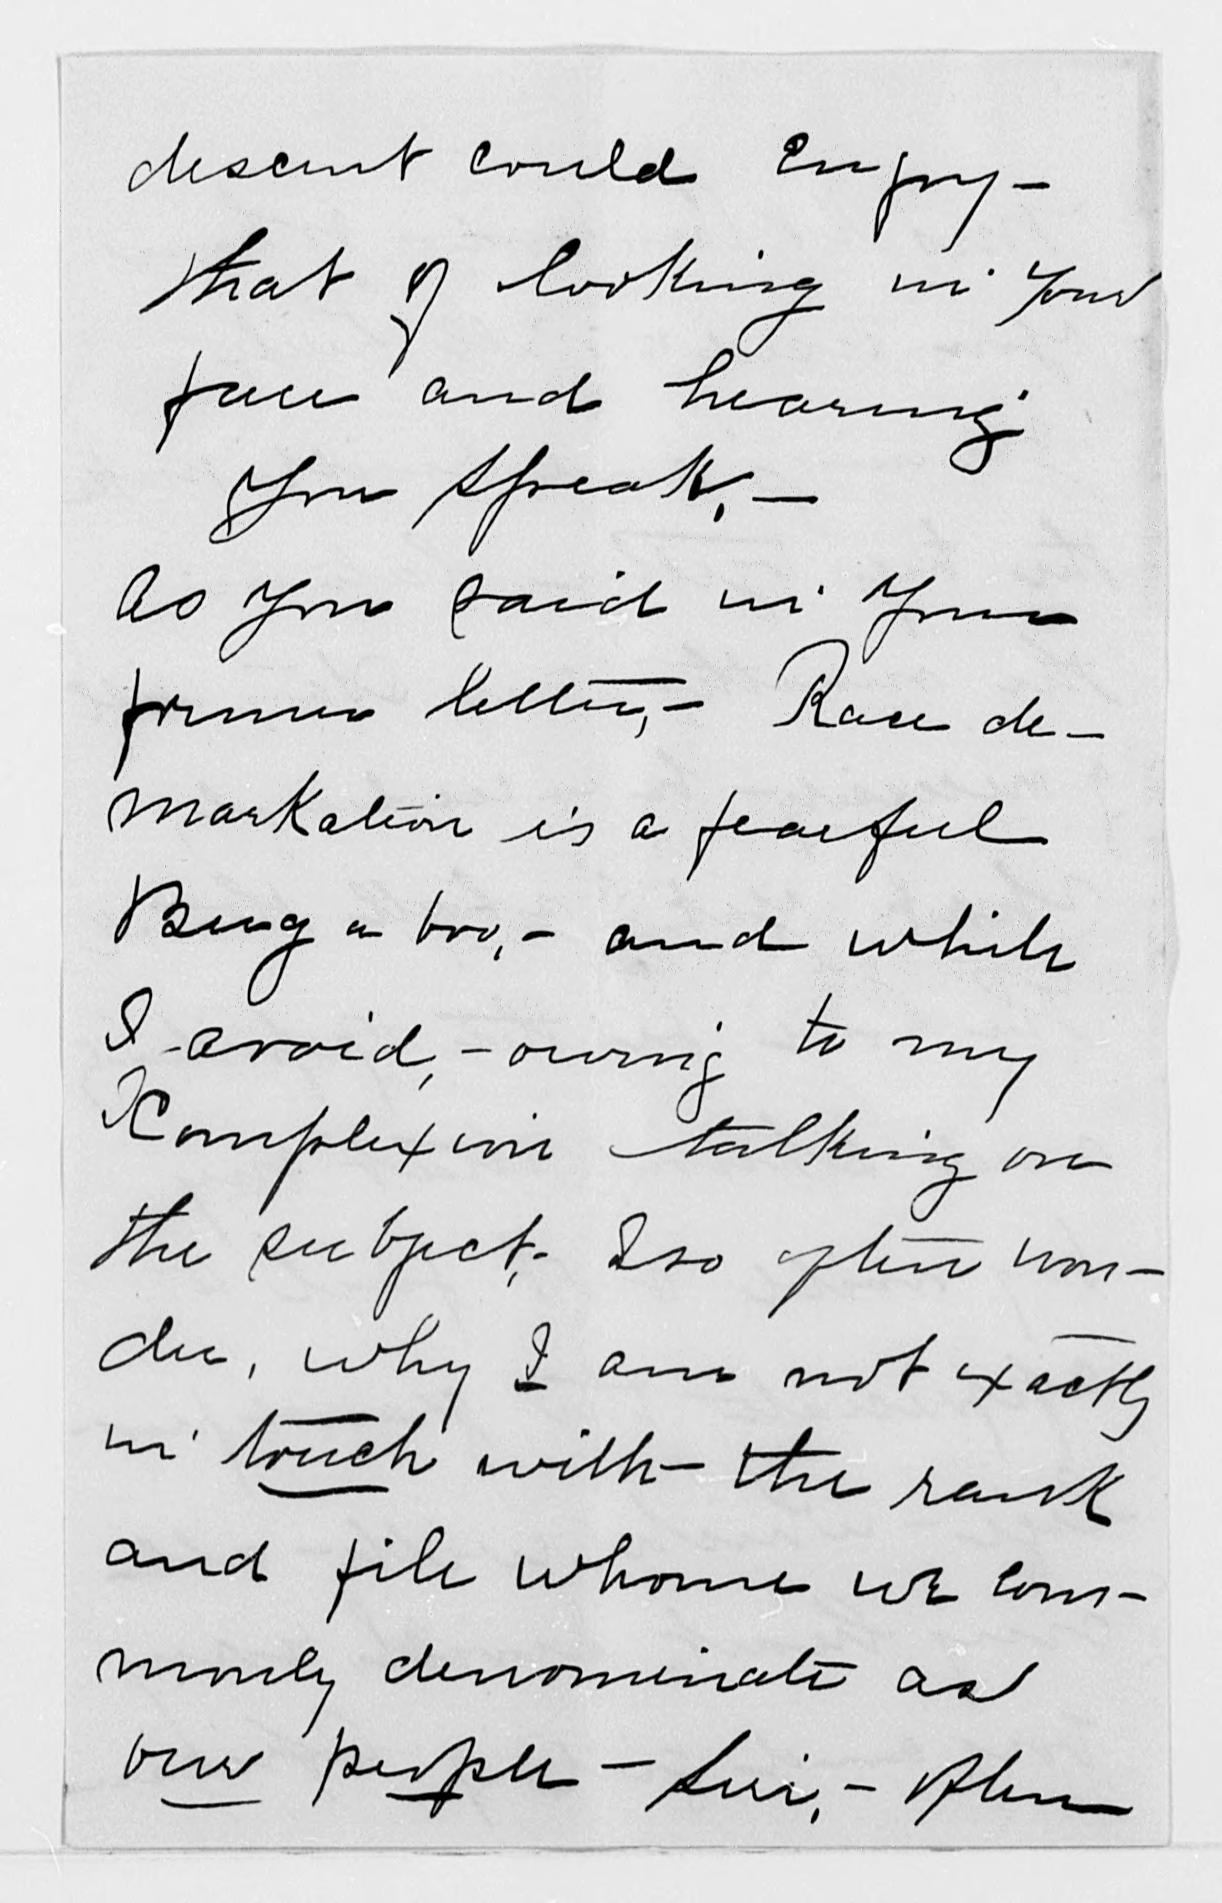 descent could enjoy-
that of looking in your
face and hearing
you speak,-
As you said in your
former letter,- Race de-
markation is a fearful
Bug a boo,- and while
I avoid,-owing to my
Complexion talking on
the subject,- I so often won-
der, why I am not exactly
in touch with- the rank
and file whome we com-
monly denominate as
our people - Sir,- often